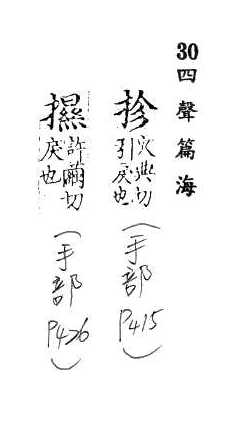 30四聲篇海
抮 火典切引戾也(手部P415)
㩪 許繭切戾也(手部P426)